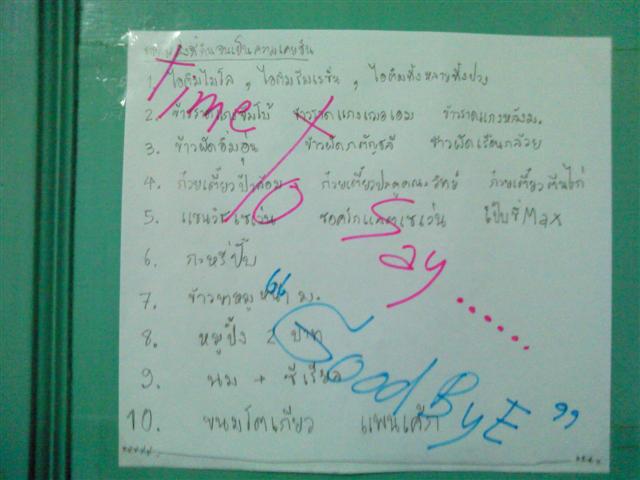 ที่กินจนเป็นความเคยชิน
1. ไอติมไมโล , ไอติมรีมเรชั่น , ไอติมทั้งหลายทั้งปวง
2. ข้าวราดแกงจัมโบ้ ข้าวราดแกงเฌอเอม ข้าวราดแกงหลังม.
3. ข้าวผัดอิ่มอุ่น ข้าวผัดกตัญชลี ข้าวผัดเรือนกล้วย
4. ก๋วยเตี๋ยวป้า ก๋วยเตี๋ยว ก๋วยเตี๋ยวตีนไก่
5. แซนวิชเซเว่น ช็อคโกแลตเซเว่น เป๊บซี่ Max
6. กะหรี่ปั๊บ
7. ข้าวขาหมูหน้า ม.
8. หมูปิ้ง 2 บาท
9. นม + ซีเรียล
10. ขนมโตเกียว แพนเค้ก
Time To Say ......
"Good ByE"